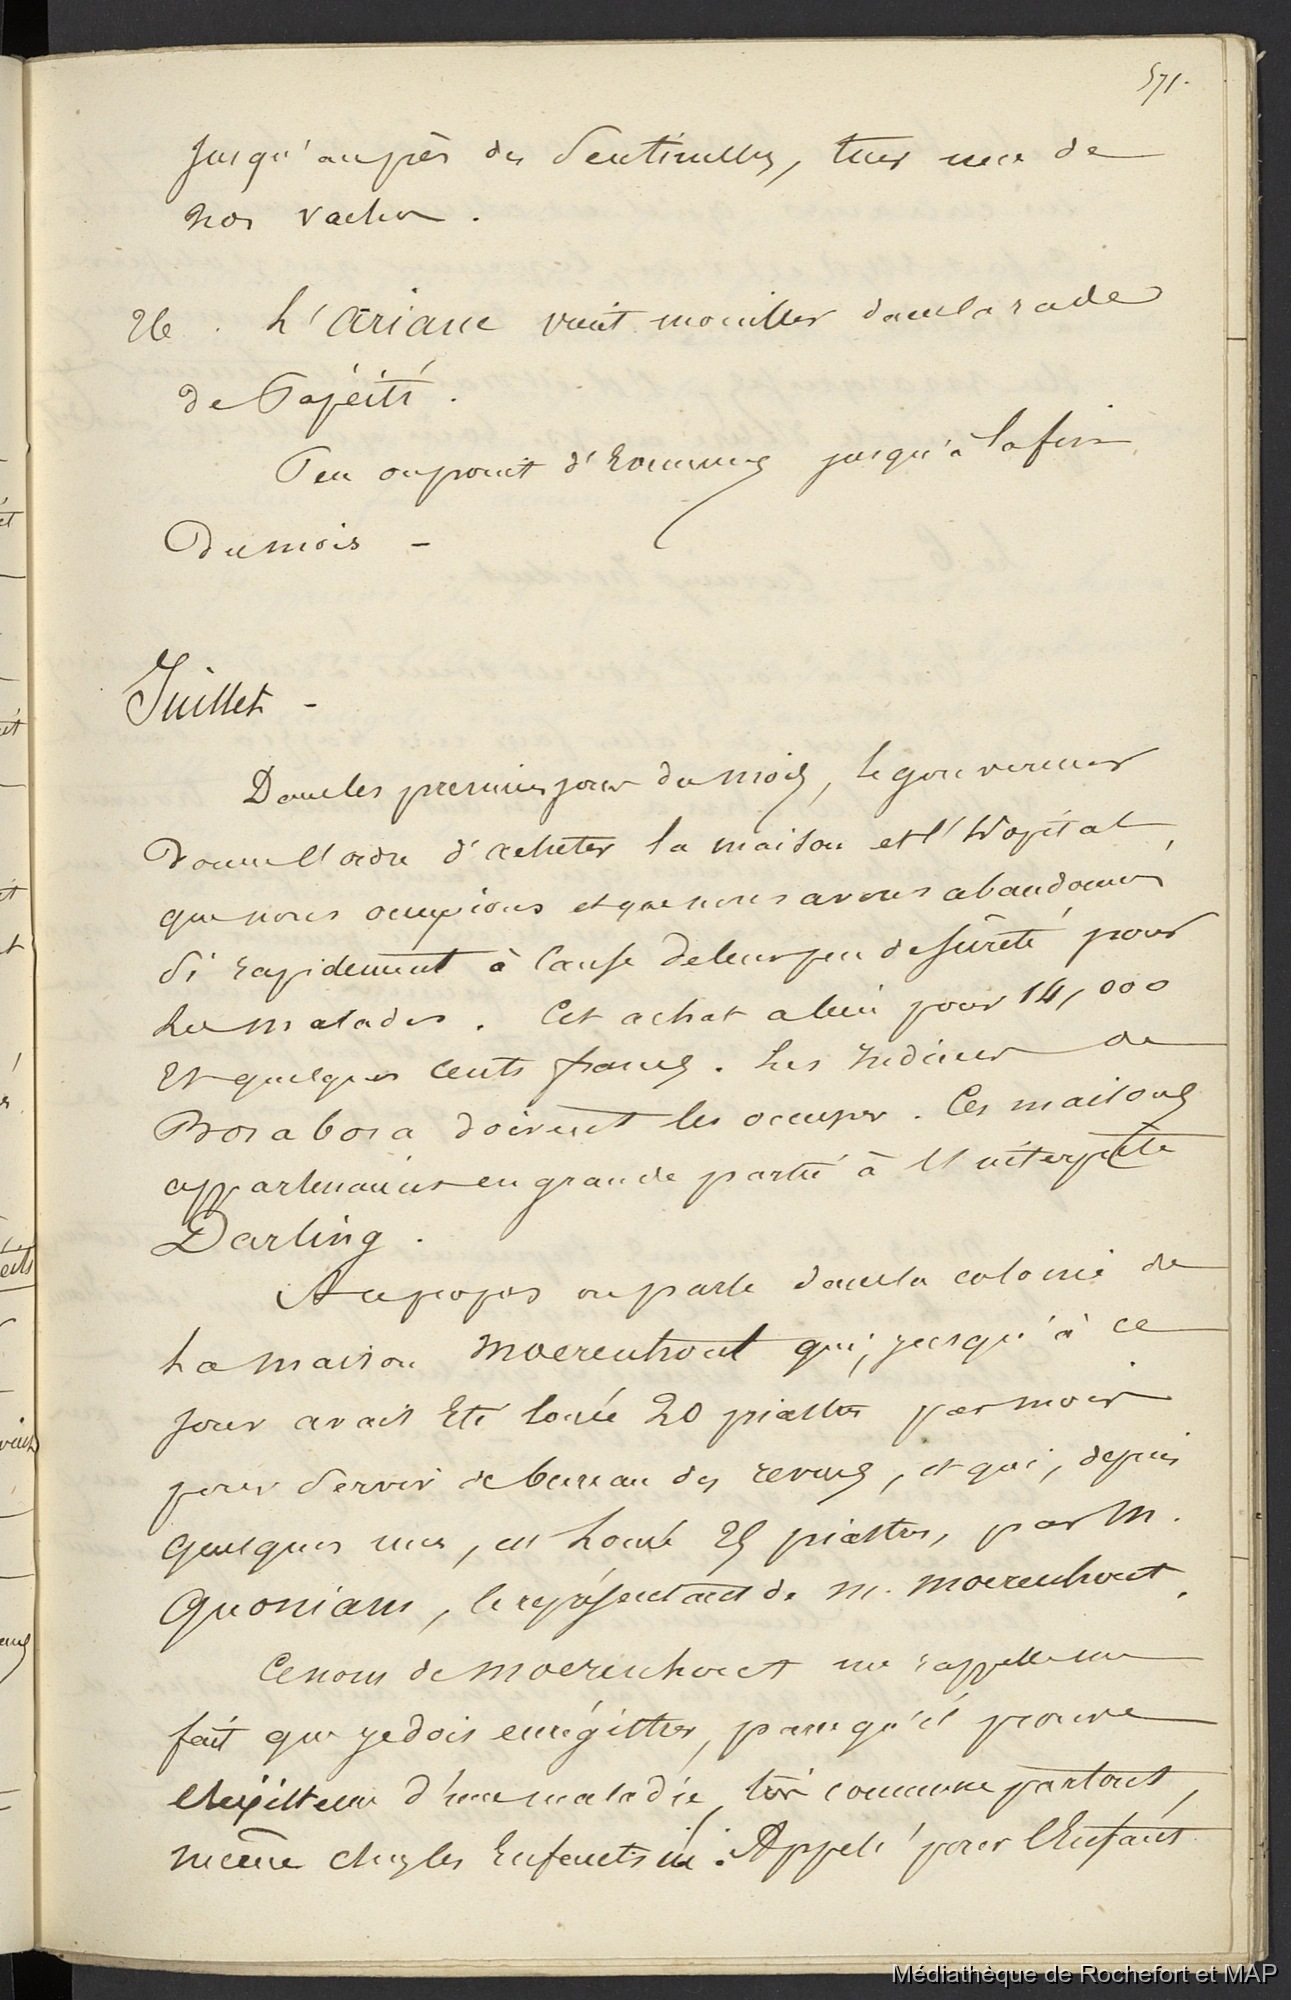 571.
jusqu'auprès des sentinelles, tuer une de
nos vaches.
26. L'Ariane vient mouiller dans la rade
de Papéïti.
Peu ou point d'Ennemis jusqu'à la fin
du mois -
Juillet -
Dans les premiers jours du mois, le gouverneur
donne l'ordre d'acheter la maison et l'hôpital,
que nous occupions et que nous avons abandonnés
si rapidement à cause de leur peu de sûreté pour
les malades. Cet achat a lieu pour 14,000
et quelques cents francs. Les Indiens de
Borabora doivent les occuper. Ces maisons
appartenaient en grande partie à l'interprète
Darling.
A ce propos on parle dans la colonie de
la maison Moerenhout qui, jusqu'à ce
jour avait été louée 20 piastres par mois
pour servir de bureau des revues, et qui, depuis
quelques mois, est louée 25 piastres, par M.
Quoniam, le représentant de M. Moerenhout.
Ce nom de Moerenhout me rappelle un
fait que je dois enrégistrer, parcequ'il prouve
l'existence d'une maladie, très commune partout,
même chez les Enfants ici. Appelé pour l'Enfant
Médiathèque de Rochefort et MAP